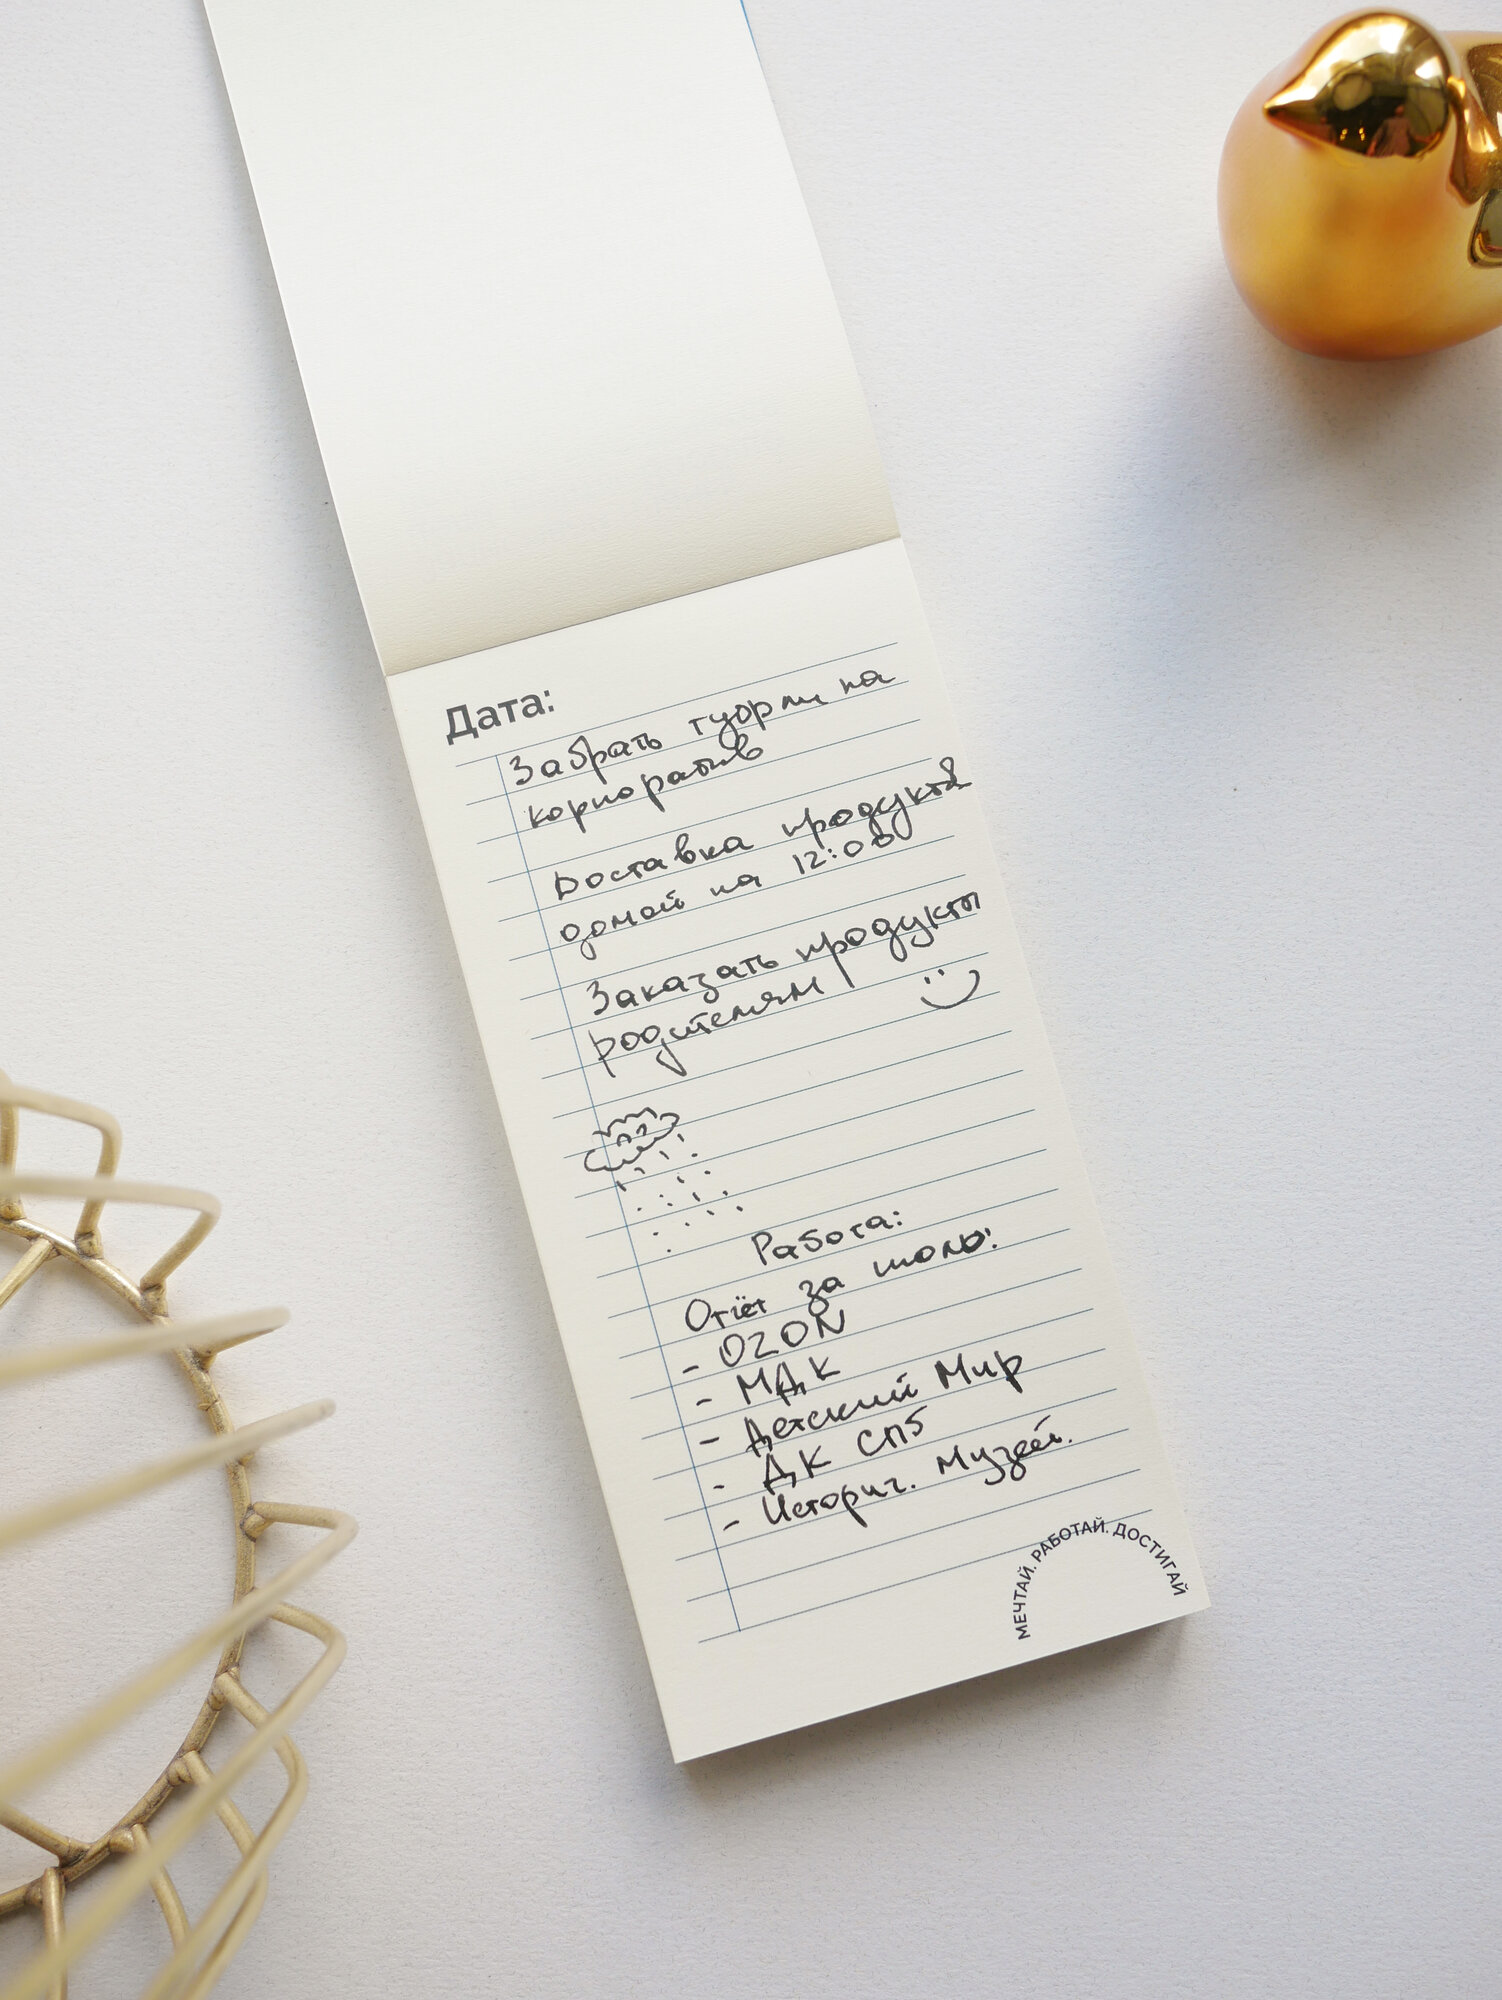 Дата:
Забрать туфли на
корпоратив
Доставка продуктов
домой на 12:00
Заказать продукты
родителям
Работа:
Отчёт за июль:
- OZON
- МДК
- Детский Мир
- ДК СПб
- Историч. Музей.
МЕЧТАЙ. РАБОТАЙ. ДОСТИГАЙ